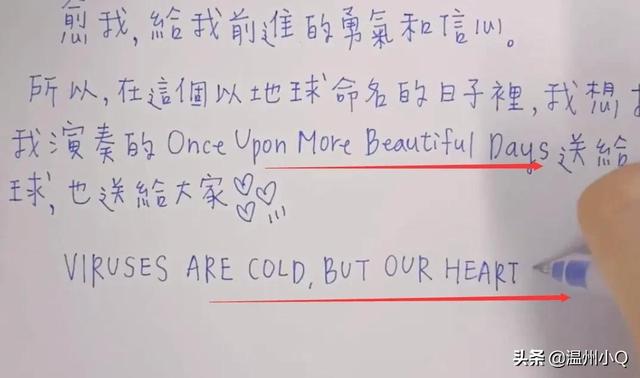 愈我,給我前進的勇氣和信心。
所以,在這個以地球命名的日子裡,我想
我演奏的 Once Upon More Beautiful Days 送給
球,也送給大家♡♡♡
VIRUSES ARE COLD, BUT OUR HEART
头条 @温州小Q